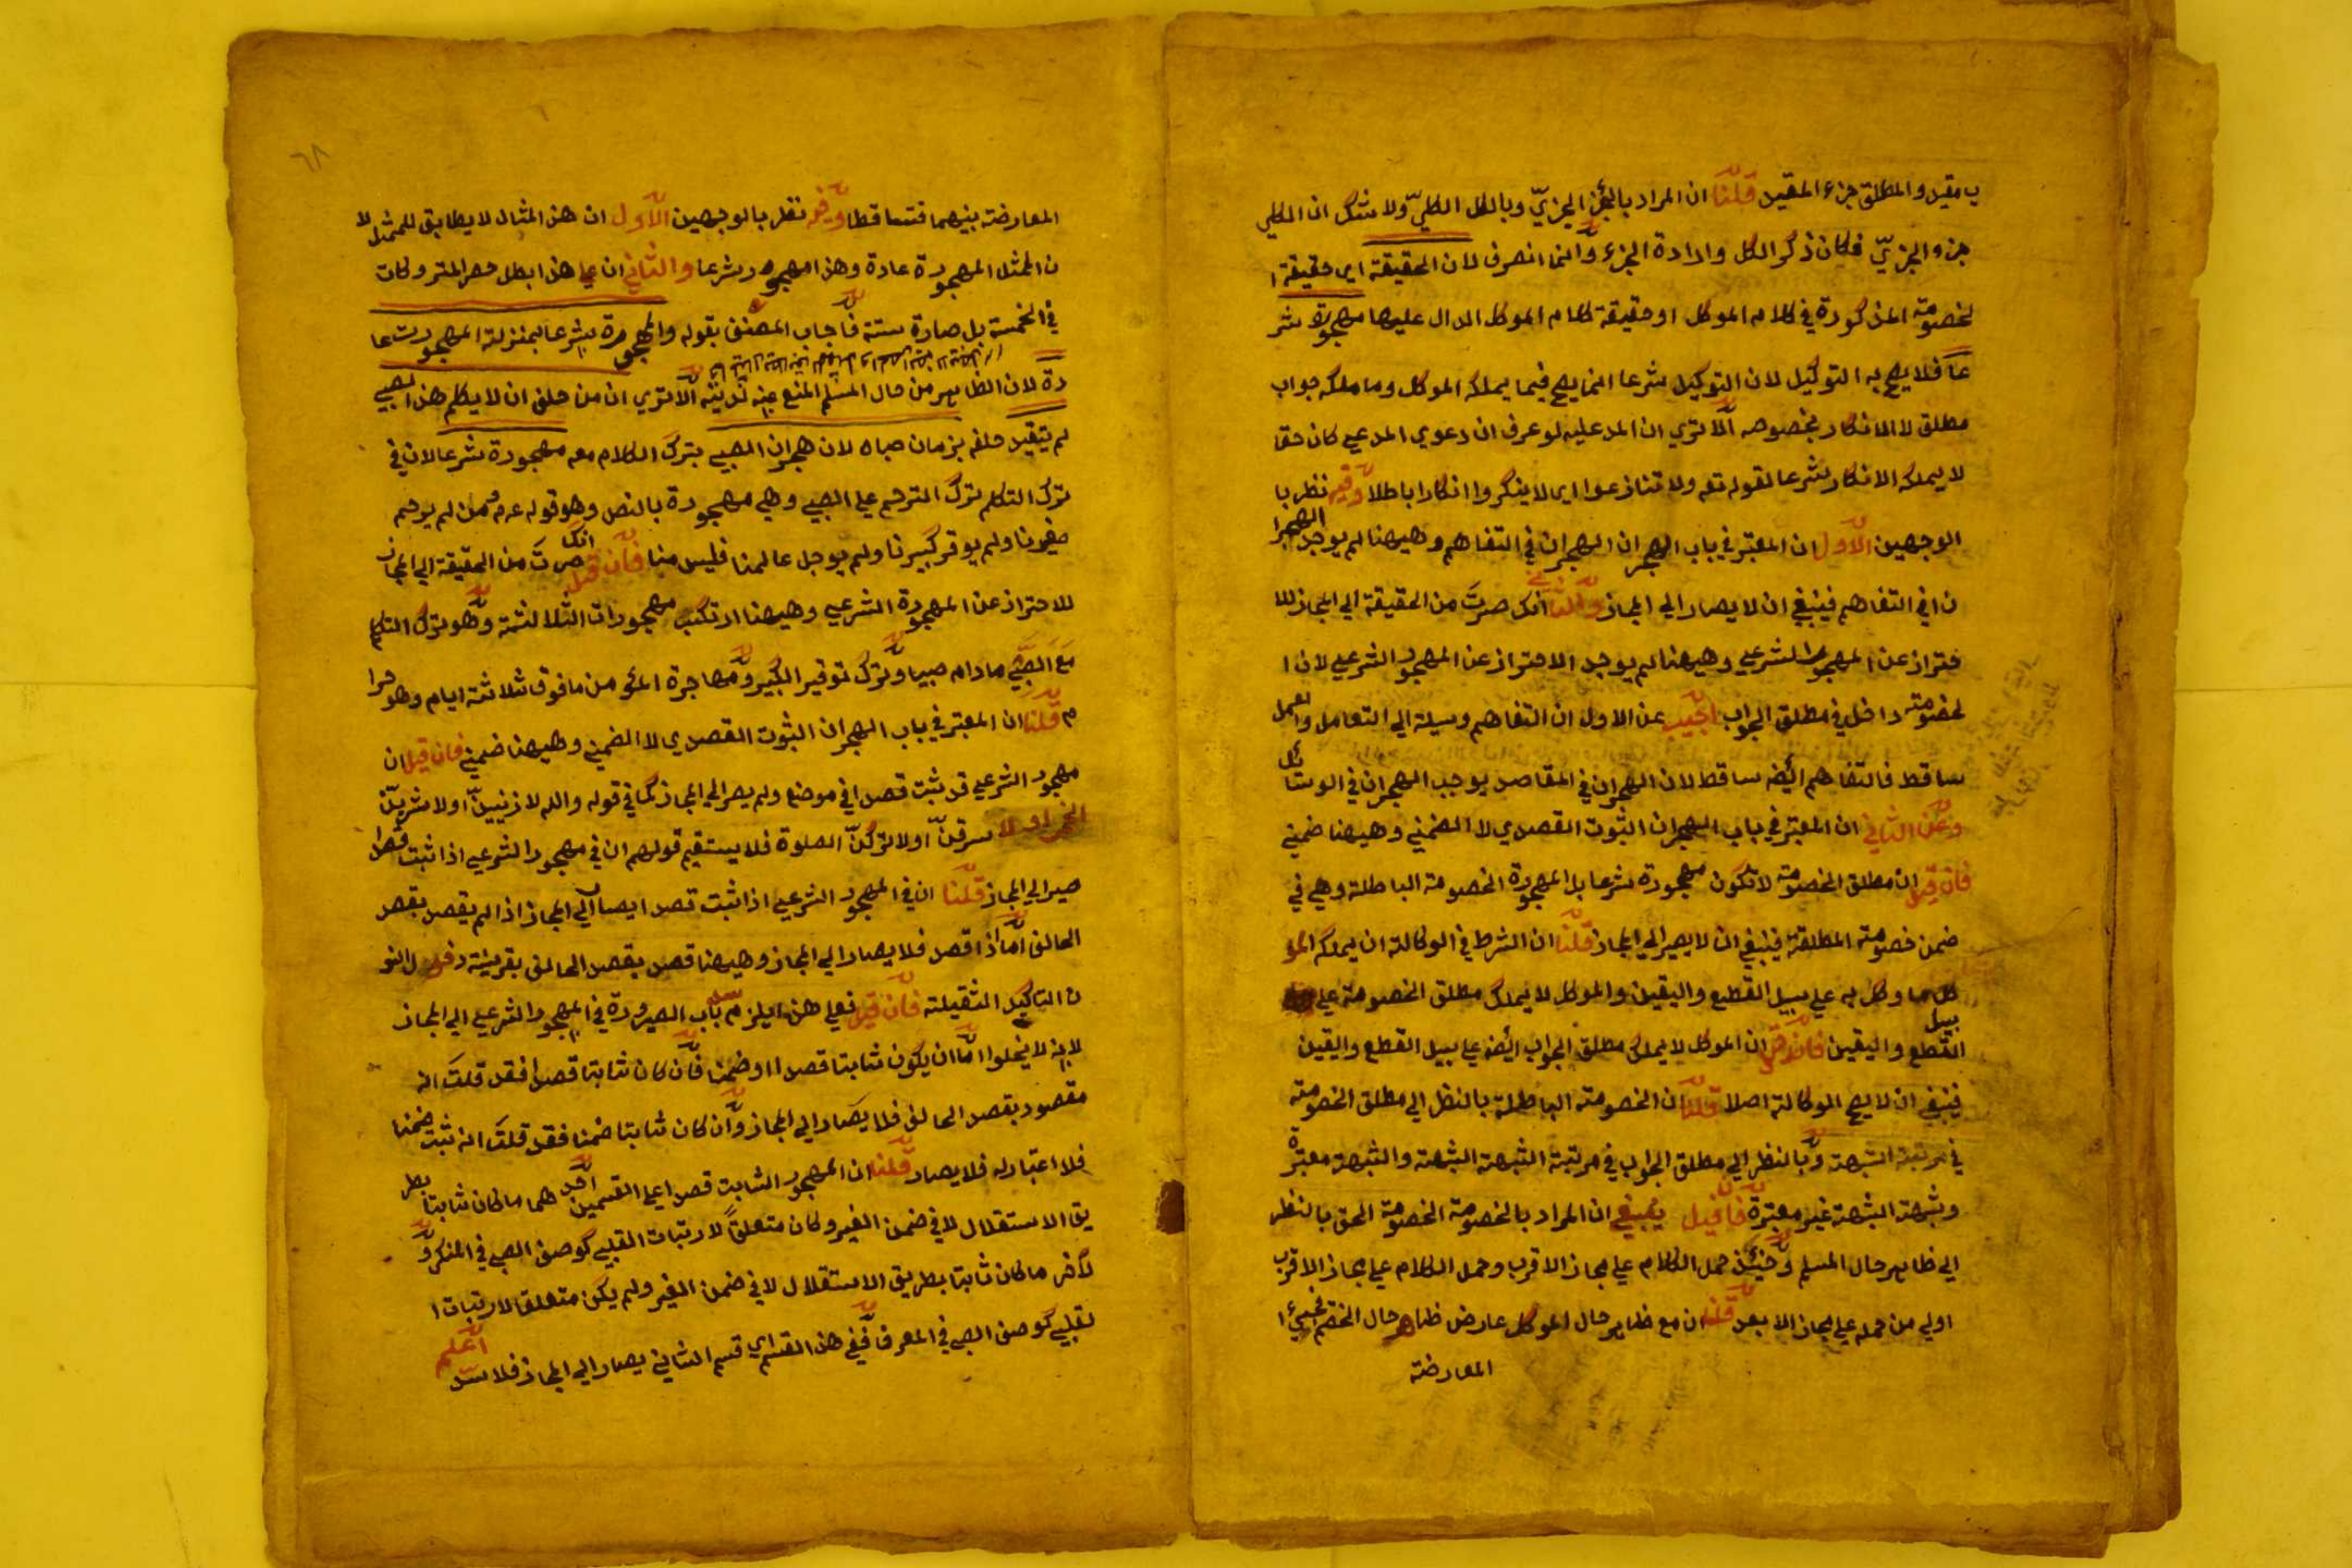 ب مقيد والمطلق جزء المقيد قلنا ان المراد بالجزء الجزيّ وبالكل الكليّ ولا شك ان الكلي
جزء الجزيّ فكان ذكر الكل وارادة الجزء وانما انصرف لان الحقيقة اي حقيقة ا
لخصومة المذكورة في كلام الموكل او حقيقة كلام الموكل الدال عليها مهجورة شر
عا فلا يصح به التوكيل لان التوكيل شرعا انما يصح فيما يملكه الموكل وما ملكه جواب
مطلق لا الانكار بخصوصه الا تري ان المدعليه لو عرف ان دعوي المدعي كان حقا
لا يملك الانكار شرعا لقوله تعه ولا تنازعوا اي لا ينكروا انكارا باطلا وفيه نظر با
الوجهين الاول ان المعتبر في باب الهجران الهجران في التفاهم وهيهنا لم يوجد الهجرا
ن في التفاهم فينبغي ان لا يصار الي المجاز والثاني انك صرت من الحقيقة الي المجاز للا
حتراز عن المهجور الشرعي وهيهنا لم يوجد الاحتراز عن المهجور الشرعي لان ا
لخصومة داخل في مطلق الجواب اجيب عن الاول ان التفاهم وسيلة الي التعامل والعمل
ساقط فالتفاهم ايضه ساقط لان الهجران في المقاصد يوجب الهجران في الوسائل
وعن الثاني ان المعتبر في باب الهجران الثبوت القصدي لا الضمني وهيهنا ضمني
فان قيل ان مطلق الخصومة لا تكون مهجورة شرعا بل المهجورة الخصومة الباطلة وهي في
ضمن خصومة المطلقة فينبغي ان لا يصير الي المجاز قلنا ان الشرط في الوكالة ان يملكه المو
كل ما وكل به علي سبيل القطع واليقين والموكل لا يملك مطلق الخصومة علي
سبيل القطع واليقين فان قيل ان الموكل لا يملك مطلق الجواب ايضه علي سبيل القطع واليقين
فينبغي ان لا يصح الوكالة اصلا قلنا ان الخصومة الباطلة بالنظر الي مطلق الخصومة
في مرتبة الشبهة وبالنظر الي مطلق الجواب في مرتبة الشبهة الشبهة والشبهة معتبرة
وشبهة الشبهة غير معتبرة فان قيل ينبغي ان المراد بالخصومة الخصومة الحق بالنظر
الي ظاهر حال المسلم وحينئذ حمل الكلام علي مجاز الاقرب وحمل الكلام علي مجاز الاقرب
اولي من حمله علي مجاز الابعد قلنا ان مع ظاهر حال الموكل عارض ظاهر حال الخصم فجيء ا
المعارضة
٦٨
المعارضة بينهما فتساقطا وفيه نظر بالوجهين الاول ان هذا المثال لا يطابق للممثل لا
ن الممثل المهجورة عادة وهذا مهجور شرعا والثاني ان علي هذا ابطل حصر المتروكات
في الخمسة بل صارة ستة فاجاب المصنف بقوله والمهجورة شرعا بمنزلة المهجورت عا
دة لان الظاهر من حال المسلم المنع عنه تدينه الا تري ان من حلف ان لا يكلم هذا الصبي
لم يتقيد حلفه بزمان صباه لان هجران الصبي بترك الكلام معه مهجورة شرعا لان في
ترك التكلم ترك الترحم علي الصبي وهي مهجورة بالنص وهو قوله عم من لم يرحم
صغيرنا ولم يوقر كبيرنا ولم يوجل عالمنا فليس منا فان قيل انك صرت من الحقيقة الي المجاز
للاحتراز عن المهجورة الشرعي وهيهنا ارتكب مهجورات الثلاثة وهو ترك التكلم
مع الصبي ما دام صبيا وترك توقير الكبير ومهاجرة المؤمن ما فوق ثلاثة ايام وهو حرا
م قلنا ان المعتبر في باب الهجران الثبوت القصدي لا الضمني وهيهنا ضمني فان قيل ان
مهجور الشرعي قد ثبت قصدا في موضع ولم يصر الي المجاز كما في قوله والله لازنينّ او لاشربنّ
الخمر او لاسرقنّ او لاتركنّ الصلوة فلا يستقيم قولهم ان في مهجور الشرعي اذا ثبت قصدا
صير الي المجاز قلنا ان في المهجور الشرعي اذا ثبت قصدا يصار الي المجاز اذا لم يقصد بقصد
الحالف اما اذا قصد فلا يصار الي المجاز وهيهنا قصد بقصد الحالف بقرينة دخول النو
ن التاكيد الثقيلة فان قيل فعلي هذا يلزم سد باب الصيرورة في المهجور الشرعي الي المجاز
لانه لا يخلوا اما ان يكون ثابتا قصدا او ضمنا فان كان ثابتا قصدا فقد قلت انه
مقصود بقصد الحالف فلا يصار الي المجاز وان كان ثابتا ضمنا فقد قلت انه ثبت ضمنا
فلا اعتبار له فلا يصار قلنا ان المهجور الثابت قصدا علي القسمين احد هما ما كان ثابتا بطر
يق الاستقلال لا في ضمن الغير وكان متعلقا لارتبات القلبي كوصف الصبي في المنكر و
لاخر ما كان ثابتا بطريق الاستقلال لا في ضمن الغير ولم يكن متعلقا لارتبات ا
لقلبي كوصف الصبي في المعرف ففي هذا القسم اي قسم الثاني يصار الي المجاز فلا سدّ
اعلم